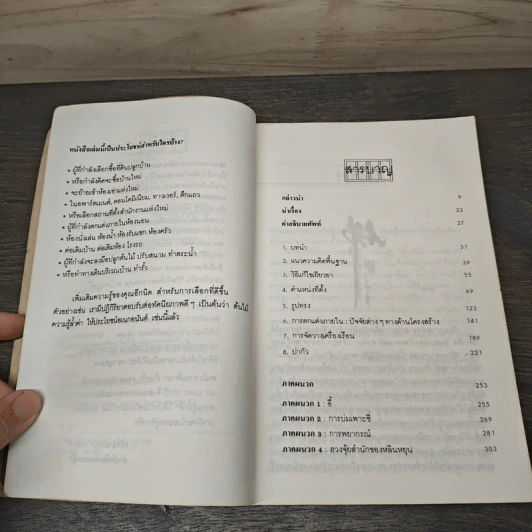 หนังสือเล่มนี้เป็นประโยชน์สำหรับใครบ้าง?
• ผู้ที่กำลังเลือกซื้อที่ดินปลูกบ้าน
• หรือกำลังคิดจะซื้อบ้านใหม่
• จะย้ายเข้าห้องเช่าแห่งใหม่
• ในอพาร์ตเมนต์, คอนโดมิเนียม, ทาวเวอร์, ตึกแถว
• หรือเลือกสถานที่ตั้งสำนักงานแห่งใหม่
• ผู้ที่กำลังตกแต่งภายในห้องนอน
• ห้องนั่งเล่น ห้องน้ำ ห้องรับแขก ห้องครัว
• ต่อเติมบ้าน ต่อเติมห้อง โรงรถ
• ผู้ที่กำลังจะลงมือปลูกต้นไม้ ปรับสนาม ทำสระน้ำ
• หรือทำทางเดินบริเวณบ้าน ทำรั้ว
เพิ่มเติมความรู้ของคุณอีกนิด สำหรับการเลือกที่ดีขึ้น
ตัวอย่างเช่น เรามีปฏิกิริยาตอบรับต่อทัศนียภาพดี ๆ เป็นต้นว่า ต้นไม้
ความรู้ล้ำค่า ให้ประโยชน์อเนกอนันต์ เช่นนี้แล้ว
สารบาญ
กล่าวนำ 9
นำเรื่อง 23
คำอธิบายศัพท์ 27
1. บทนำ 31
2. แนวความคิดพื้นฐาน 39
3. วิธีแก้ไขเยียวยา 55
4. ตำแหน่งที่ตั้ง 67
5. รูปทรง 107
6. การตกแต่งภายใน : ปัจจัยต่าง ๆ ทางด้านโครงสร้าง 141
7. การจัดวางเครื่องเรือน 189
8. ปากัว 221
ภาคผนวก 253
ภาคผนวก 1 : อี้ 255
ภาคผนวก 2 : การบ่มเพาะชี่ 269
ภาคผนวก 3 : การพยากรณ์ 281
ภาคผนวก 4 : ฮวงจุ้ยสำนักของหลินหยุน 303